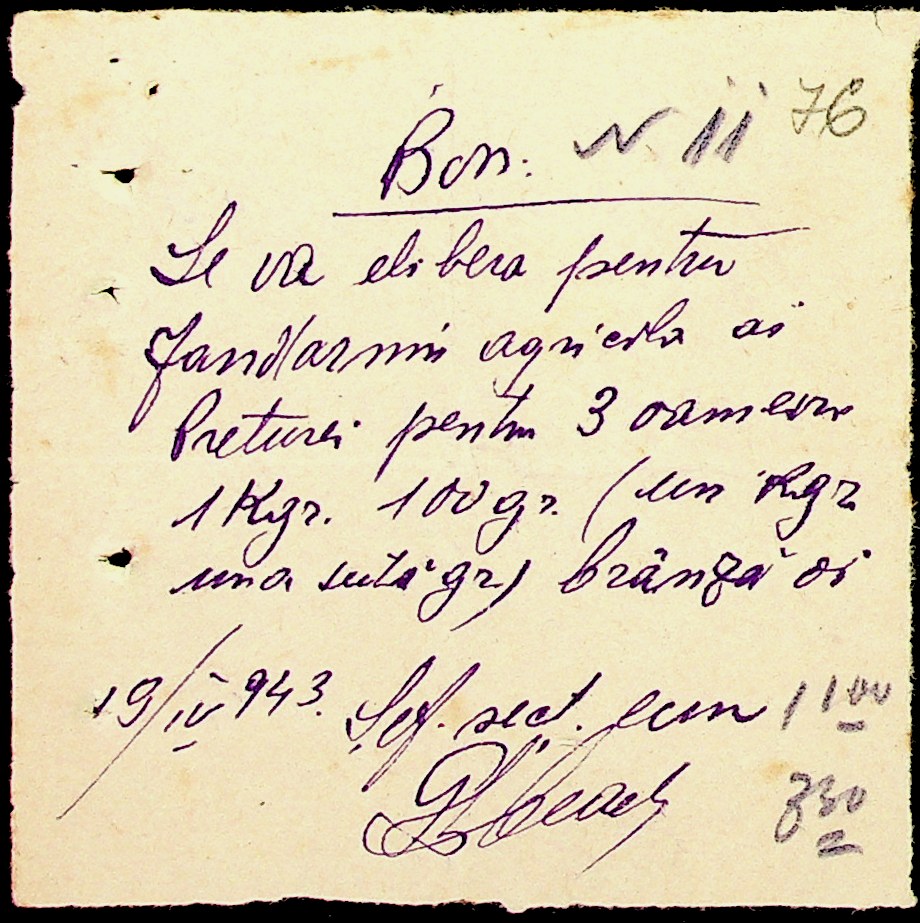 Bon. N 11 76
Se va elibera pentru
Jandarmii agricola ai
Preturei pentru 3 oameni
1 Kgr. 100 gr. (un Kgr
una sută gr) brânză oi
19/IV 943. Șef. sect.
11 00